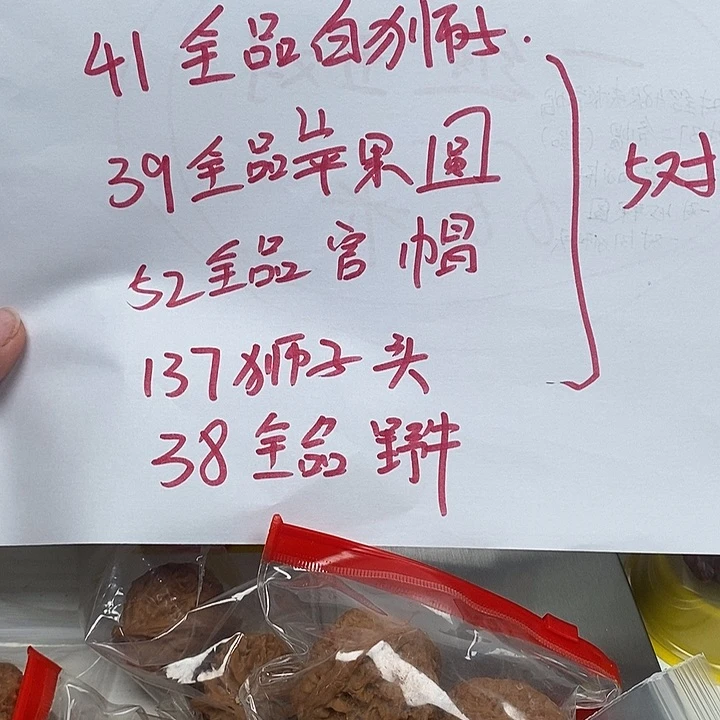 41全品白狮.
39全品苹果圆
52全品官帽
137狮子头
38全品野牛
5对